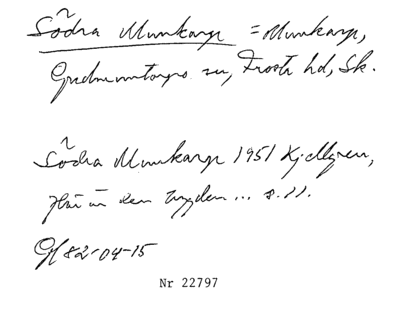 Södra Munkarp = Munkarp,
Gudmuntorps sn, Frosta hd, Sk.
Södra Munkarp 1951 Kjellgren,
Här är den bygden... s. 11.
82-04-15
Nr 22797